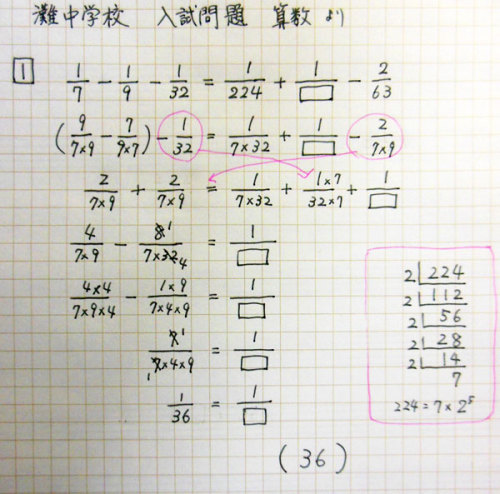 灘中学校 入試問題 算数 より
1 1/7 - 1/9 - 1/32 = 1/224 + 1/□ - 2/63
(9/7×9 - 7/9×7) - 1/32 = 1/7×32 + 1/□ - 2/7×9
2/7×9 + 2/7×9 = 1/7×32 + 1×7/32×7 + 1/□
4/7×9 - 8 1/7×32 4 = 1/□
4×4/7×9×4 - 1×9/7×4×9 = 1/□
7 1/1 7×4×9 = 1/□
1/36 = 1/□
(36)
2 224
2 112
2 56
2 28
2 14
7
224 = 7×2⁵